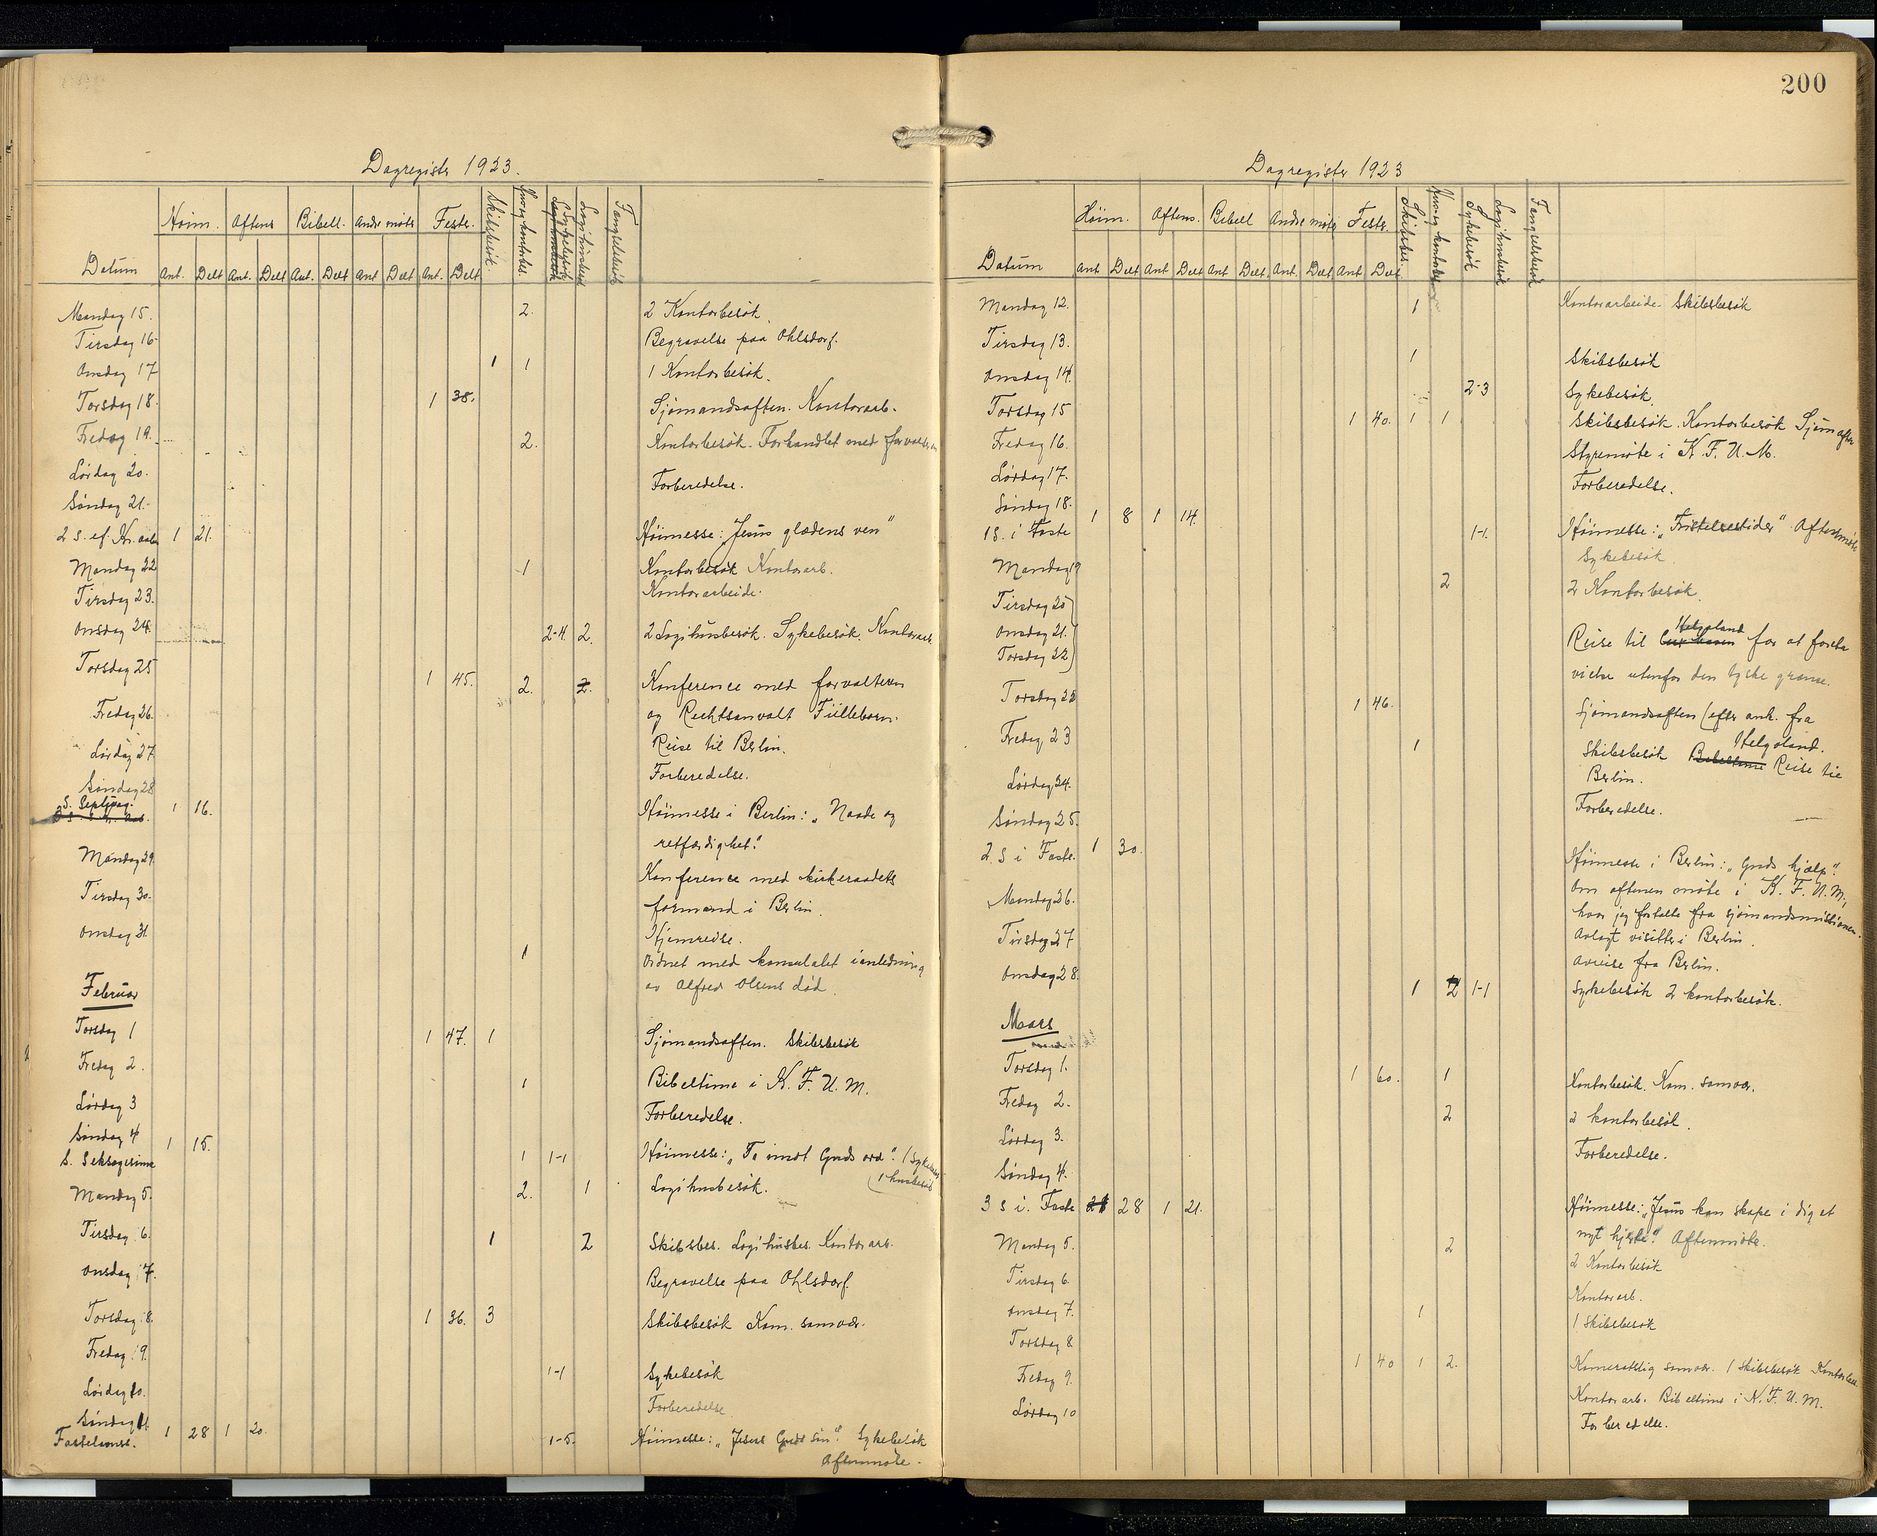 200
Dagregister 1923.
Høim. Aftens Bibell. Andre møter Feste. Skibsbesøk Sykebesøk Logihusbesøk Fængselsbesøk
Datum Ant. Delt Ant. Delt Ant. Delt Ant Delt Ant. Delt.
Mandag 15. 2. 2 Kontorbesøk
Tirsdag 16. Begravelse paa Ohlsdorf.
Onsdag 17 1 1 1 Kontorbesøk.
Torsdag 18. 1 38. Sjømandsaften. Kontorarb.
Fredag 19. 2. Kontorbesøk. Forhandlet med forvalteren
Lørdag 20. Forberedelse.
Søndag 21.
2 S. ef. Kr. aab. 1 21. Høimesse: "Jesus glædens ven"
Mandag 22 1 Kontorbesøk Kontorarb.
Tirsdag 23. Kontorarbeide.
Onsdag 24. 2-4 2. 2 Logihusbesøk. Sykebesøk. Kontorarb.
Torsdag 25 1 45. 2. 2. Konference med forvalteren
og Rechtsanvalt Fülleborn.
Fredag 26. Reise til Berlin.
Lørdag 27. Forberedelse.
Søndag 28
S. Septuag. 1 16. Høimesse i Berlin: "Naade og
retfærdighet."
Mandag 29. Konference med kirkeraadets
Tirsdag 30. formand i Berlin.
Hjemreise.
Onsdag 31. 1 Ordnet med konsulatet i anledning
av Alfred Olsens død.
Februar
Torsdag 1 1 47. 1 Sjømandsaften. Skibsbesøk
Fredag 2. 1 Bibeltime i K. F. U. M.
Lørdag 3 Forberedelse.
Søndag 4 1 15.
S. Seksagesima 1 1-1 Høimesse: "Ta imot Guds ord". (Sykebes.
1 husbesøk
Mandag 5. 2. 1 Logihusbesøk.
Tirsdag 6. 1 2 Skibsbes. Logihusbes. Kontorarb.
Onsdag 7. Begravelse paa Ohlsdorf.
Torsdag 8. 1 36. 3 Skibsbesøk Kam. samvær.
Fredag 9. 1-1 Sykebesøk
Lørdag 10. Forberedelse
Søndag 11.
Fastelavns. 1 28 1 20. 1-5. Høimesse: "Jesus Guds søn". Sykebesøk
Aftenmøte.
Dagregister 1923
Høim. Aftens. Bibell Andre møter Feste. Skibsbes. Sykebesøk Logihusbesøk Fængselsbesøk
Datum Ant Delt Ant Delt Ant Delt. Ant. Delt. Ant Delt
Mandag 12. 1 Kontorarbeide. Skibsbesøk
Tirsdag 13. 1 Skibsbesøk
Onsdag 14. 2-3 Sykebesøk.
Torsdag 15 1 40. 1 1 Skibsbesøk. Kontorbesøk Sjømaften
Fredag 16. Styremøte i K. F. U. M.
Lørdag 17. Forberedelse.
Søndag 18.
1 S. i Faste 1 8 1 14. 1-1. Høimesse: "Fristelsestider" Aftenmøte
Sykebesøk.
Mandag 19 2 2 Kontorbesøk.
Tirsdag 20
Onsdag 21. Reise til Cuxhaven Helgoland for at foreta
Torsdag 22 vielse utenfor den tyske grænse.
Torsdag 22 1 46. Sjømandsaften (efter ank. fra
Helgoland.
Fredag 23 1 Skibsbesøk Bibeltime Reise til
Berlin.
Lørdag 24. Forberedelse.
Søndag 25.
2. S i Faste. 1 30. Høimesse i Berlin: "Guds hjælp".
Om aftenen møte i K. F. U. M.,
Mandag 26. hvor jeg fortalte fra sjømandsmissionen.
Tirsdag 27 Avlagt visitter i Berlin.
Avreise fra Berlin.
Onsdag 28. 1 2 1-1 Sykebesøk 2 kontorbesøk.
Mars
Torsdag 1. 1 60. 1 Kontorbesøk. Kam. samvær.
Fredag 2. 2 2 kontorbesøk.
Lørdag 3. Forberedelse.
Søndag 4.
3 S i. Faste 1 28 1 21. Høimesse: "Jesus kan skape i dig et
nyt hjerte." Aftenmøte.
Mandag 5. 2 2 Kontorbesøk
Tirsdag 6. Kontorarb.
Onsdag 7. 1 1 Skibsbesøk
Torsdag 8 1 40 1 2. Kameratslig samvær. 1 Skibsbesøk Kontorbes.
Fredag 9. Kontorarb. Bibeltime i K. F. U. M.
Lørdag 10 Forberedelse.